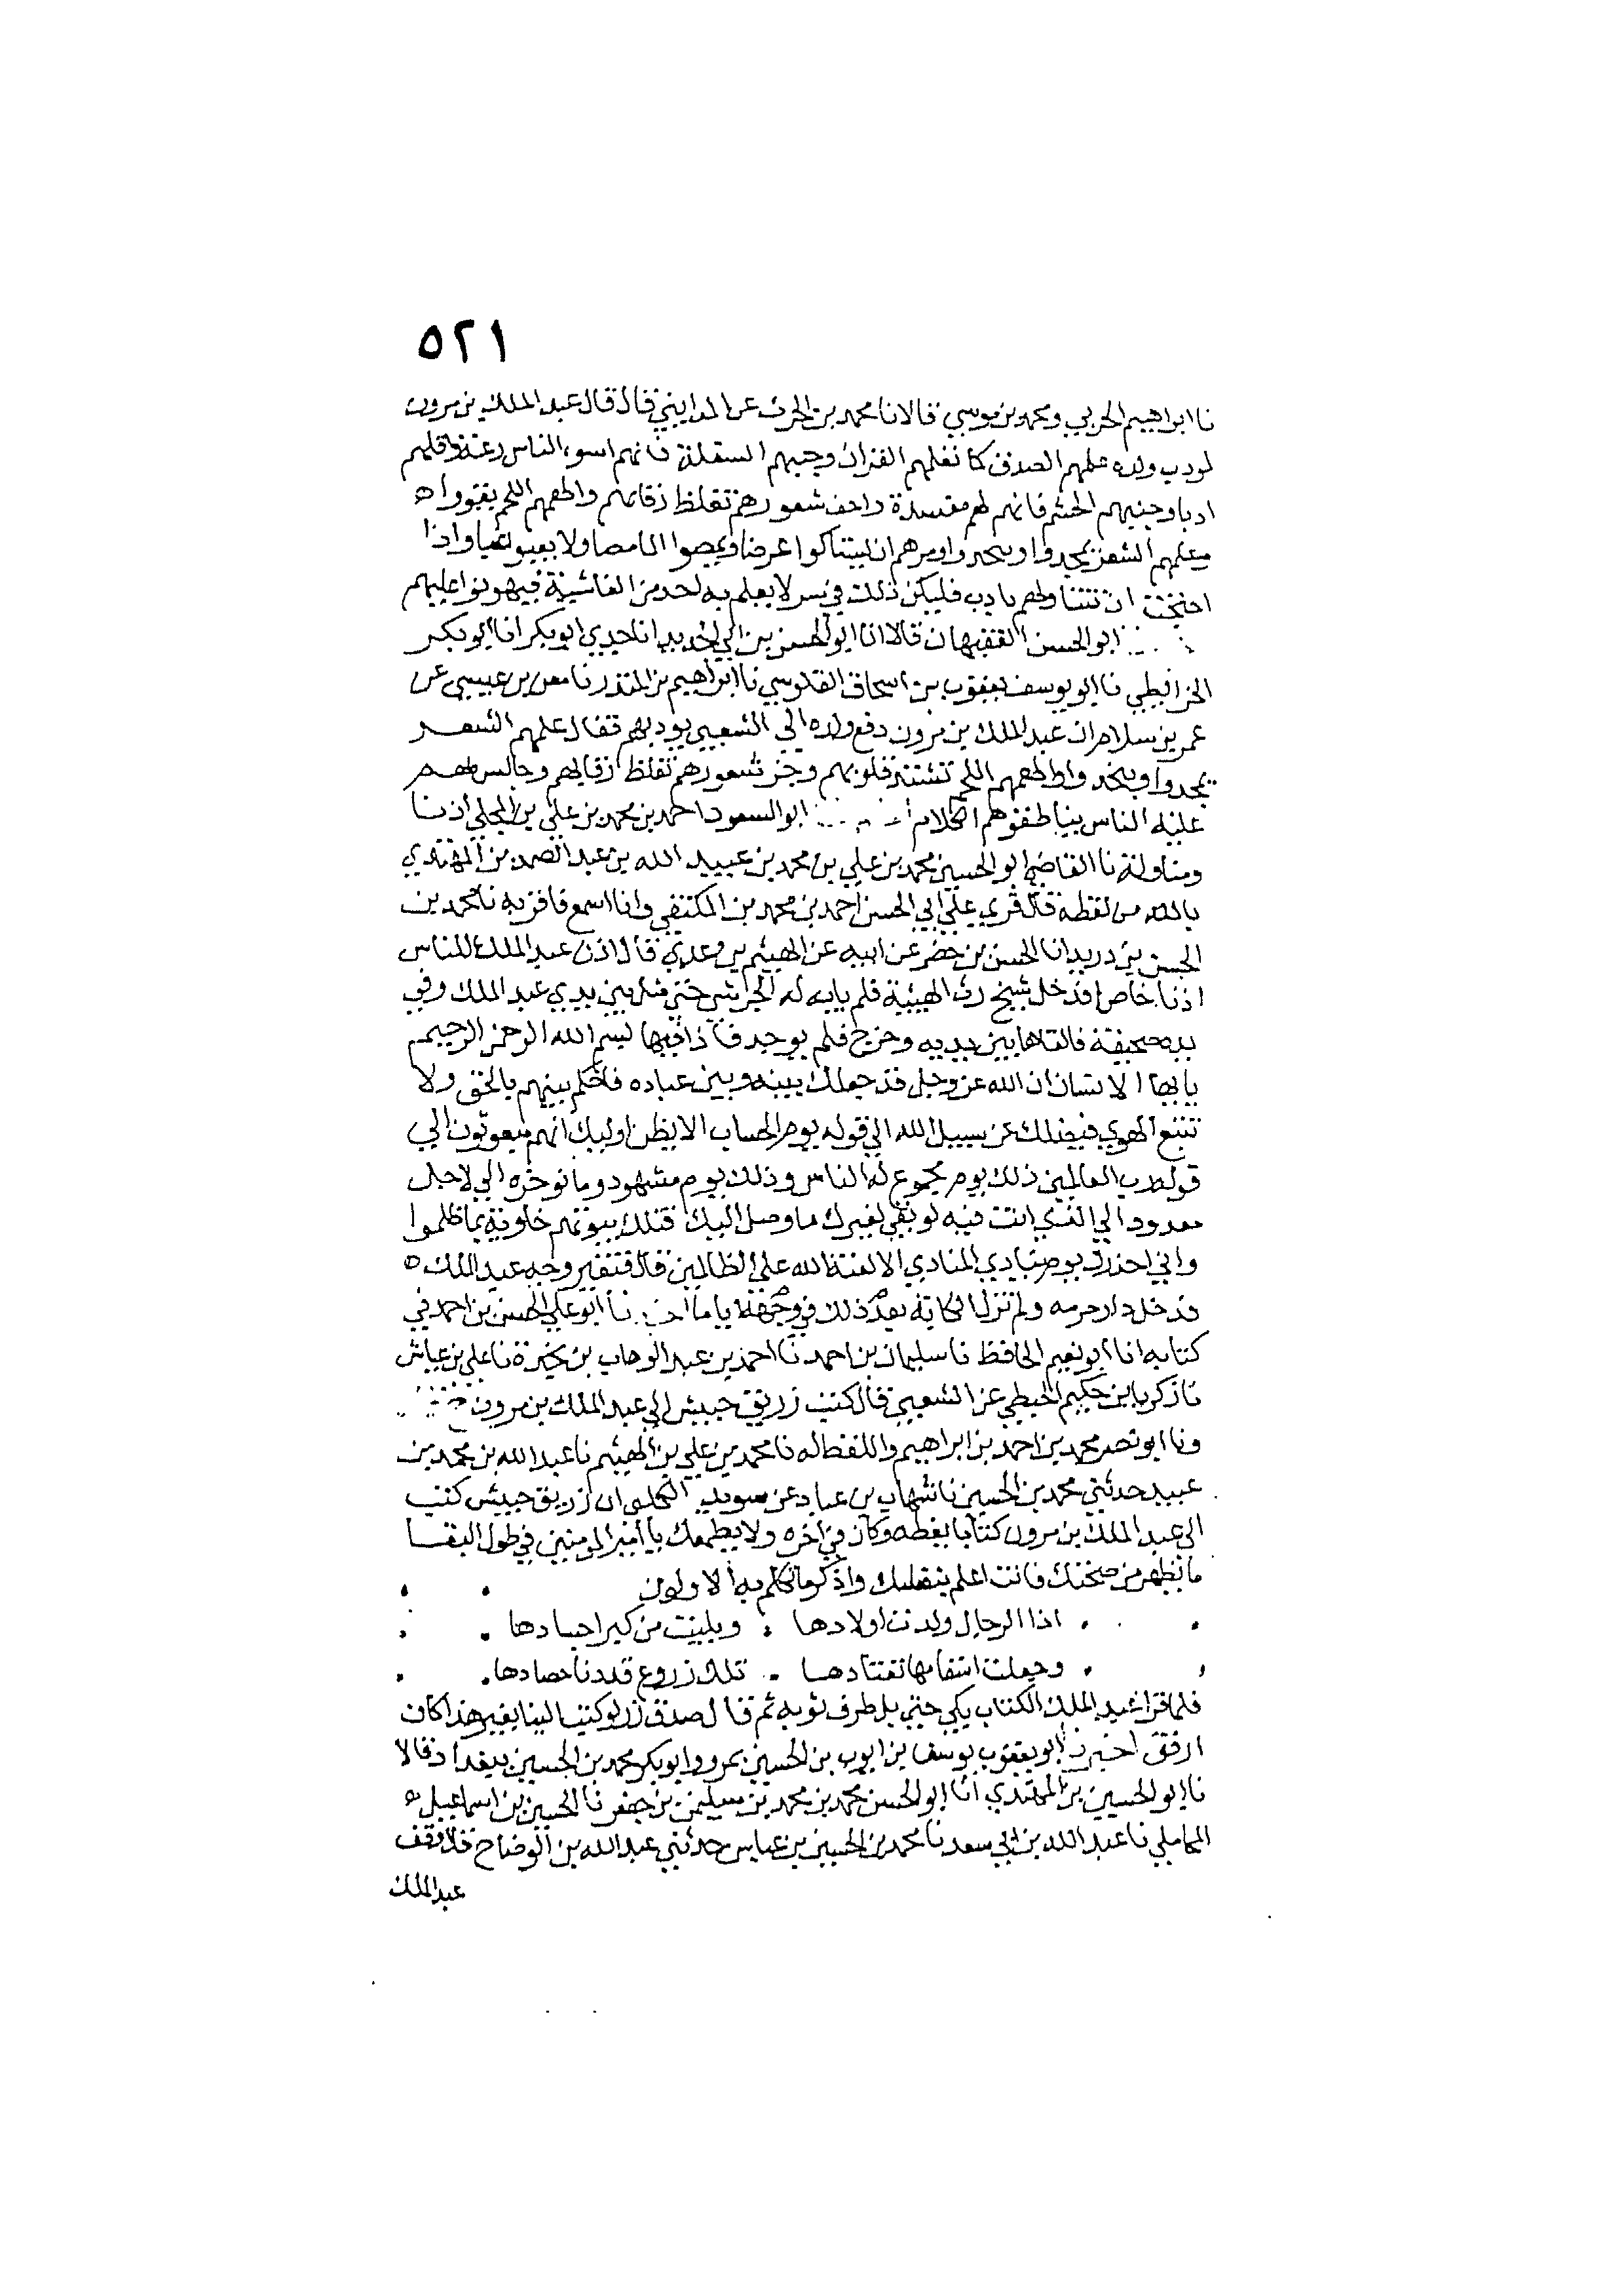 ٥٢١
نا ابراهيم الحربي ومحمد بن موسي قالا نا محمد بن الحرث عن المدايني قال قال عبد الملك بن مرون
لمودب ولده علمهم الصدق كما تعلمهم القران وجنبهم السفلة فانهم اسوء الناس رعة واقلهم
ادبا وجنبهم الحشم فانهم لهم مفسدة واحف شعورهم تغلظ رقابهم واطعمهم اللحم يقووا
وعلمهم الشعر يمجدوا وينجدوا ومرهم ان يستاكوا عرضا ويمصوا الما مصا ولا يعبوا عبا واذا
احتجت ان تتناولهم بادب فليكن ذلك في ستر لا يعلم به احد من الغاشية فيهونوا عليهم
ابو الحسن الفقيهان قالا انا ابو الحسن بن ابي الحديد انا جدي ابو بكر انا ابو بكر
الخرايطي نا ابو يوسف يعقوب بن اسحاق القلوسي نا ابراهيم بن المنذر نا معن بن عيسي عن
عمر بن سلام ان عبد الملك بن مرون دفع ولده الى الشعبي يودبهم فقال علمهم الشعر
يمجدوا وينجدوا واطعمهم اللحم تشتد قلوبهم وجز شعورهم تغلظ رقابهم وجالس بهم
علية الناس يناطقوهم الكلام ابو السعود احمد بن محمد بن علي بن المجلي اذنا
ومناولة نا القاضي ابو الحسين محمد بن علي بن محمد بن عبيد الله بن عبد الصمد بن المهتدي
بالله من لفظه قال قري علي ابي الحسن احمد بن محمد بن المكتفي وانا اسمع فاقر به نا محمد بن
الحسن بن دريد انا الحسن بن خضر عن ابيه عن الهيثم بن عدي قال اذن عبد الملك للناس
اذنا خاصا فدخل شيخ رث الهيئة فلم يابه له الحرس حتي مثل بين يدي عبد الملك وفي
يده صحيفة فالقاها بين يديه وخرج فلم يوجد فاذا فيها بسم الله الرحمن الرحيم
يا ايها الانسان ان الله عز وجل قد جعلك بينه وبين عباده فاحكم بينهم بالحق ولا
تتبع الهوي فيضلك عن سبيل الله الي قوله يوم الحساب الا يظن اوليك انهم مبعوثون الي
قوله رب العالمين ذلك يوم مجموع له الناس وذلك يوم مشهود وما نوخره الي لاجل
معدود الي الذي انت فيه لو بقي لغيرك ما وصل اليك فتلك بيوتهم خاوية بما ظلموا
واني احذرك يوم ينادي المنادي الا لعنة الله على الظالمين قال فتغير وجه عبد الملك
فدخل دار حرمه ولم تزل الكابة بعد ذلك في وجهه اياما نا ابو علي الحسن بن احمد في
كتابه انا ابو نعيم الحافظ نا سليمان بن احمد نا احمد بن عبد الوهاب بن نجدة نا علي بن عياش
نا زكريا بن حكيم الحبطي عن الشعبي قال كتب زر بن حبيش الى عبد الملك بن مرون
ونا ابو نصر محمد بن احمد بن ابراهيم واللفظ له نا محمد بن علي بن الهيثم نا عبد الله بن محمد بن
عبيد حدثني محمد بن الحسين نا شهاب بن عباد عن سويد الكلبي ان زر بن حبيش كتب
الى عبد الملك بن مرون كتابا يعظه وكان في اخره ولا يطمعك يا امير المومنين في طول البقا
ما يظهر من صحتك فانت اعلم بنفسك واذكر ما تكلم به الاولون
اذا الرجال ولدت اولادها وبليت من كبر اجسادها
وجعلت اسقامها تعتادها تلك زروع قد دنا حصادها
فلما قرا عبد الملك الكتاب بكي حتى بل طرف ثوبه ثم قال صدق زر لو كتب الينا بغير هذا كان
ارفق ابو يعقوب يوسف بن ايوب بن الحسين بمرو وابو بكر محمد بن الحسين ببغداد قالا
نا ابو الحسين بن المهتدي انا ابو الحسن محمد بن محمد بن جعفر نا الحسين بن اسماعيل
المحاملي نا عبد الله بن ابي سعد نا محمد بن الحسين بن عباس حدثني عبد الله بن الوضاح قال وقف
عبد الملك